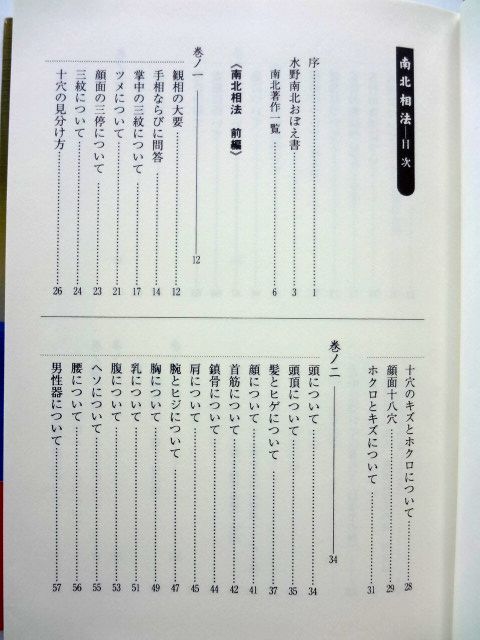 南北相法―目次
序……1
水野南北おぼえ書……3
南北著作一覧……6
《南北相法　前編》
巻ノ一――12
観相の大要……12
手相ならびに問答……14
掌中の三紋について……17
ツメについて……21
顔面の三停について……23
三紋について……24
十穴の見分け方……26
十穴のキズとホクロについて……28
顔面十八穴……29
ホクロとキズについて……31
巻ノ二――34
頭について……34
頭頂について……35
髪とヒゲについて……37
顔について……41
首筋について……42
鎖骨について……44
肩について……45
腕とヒジについて……47
胸について……49
乳について……51
腹について……53
ヘソについて……55
腰について……56
男性器について……57